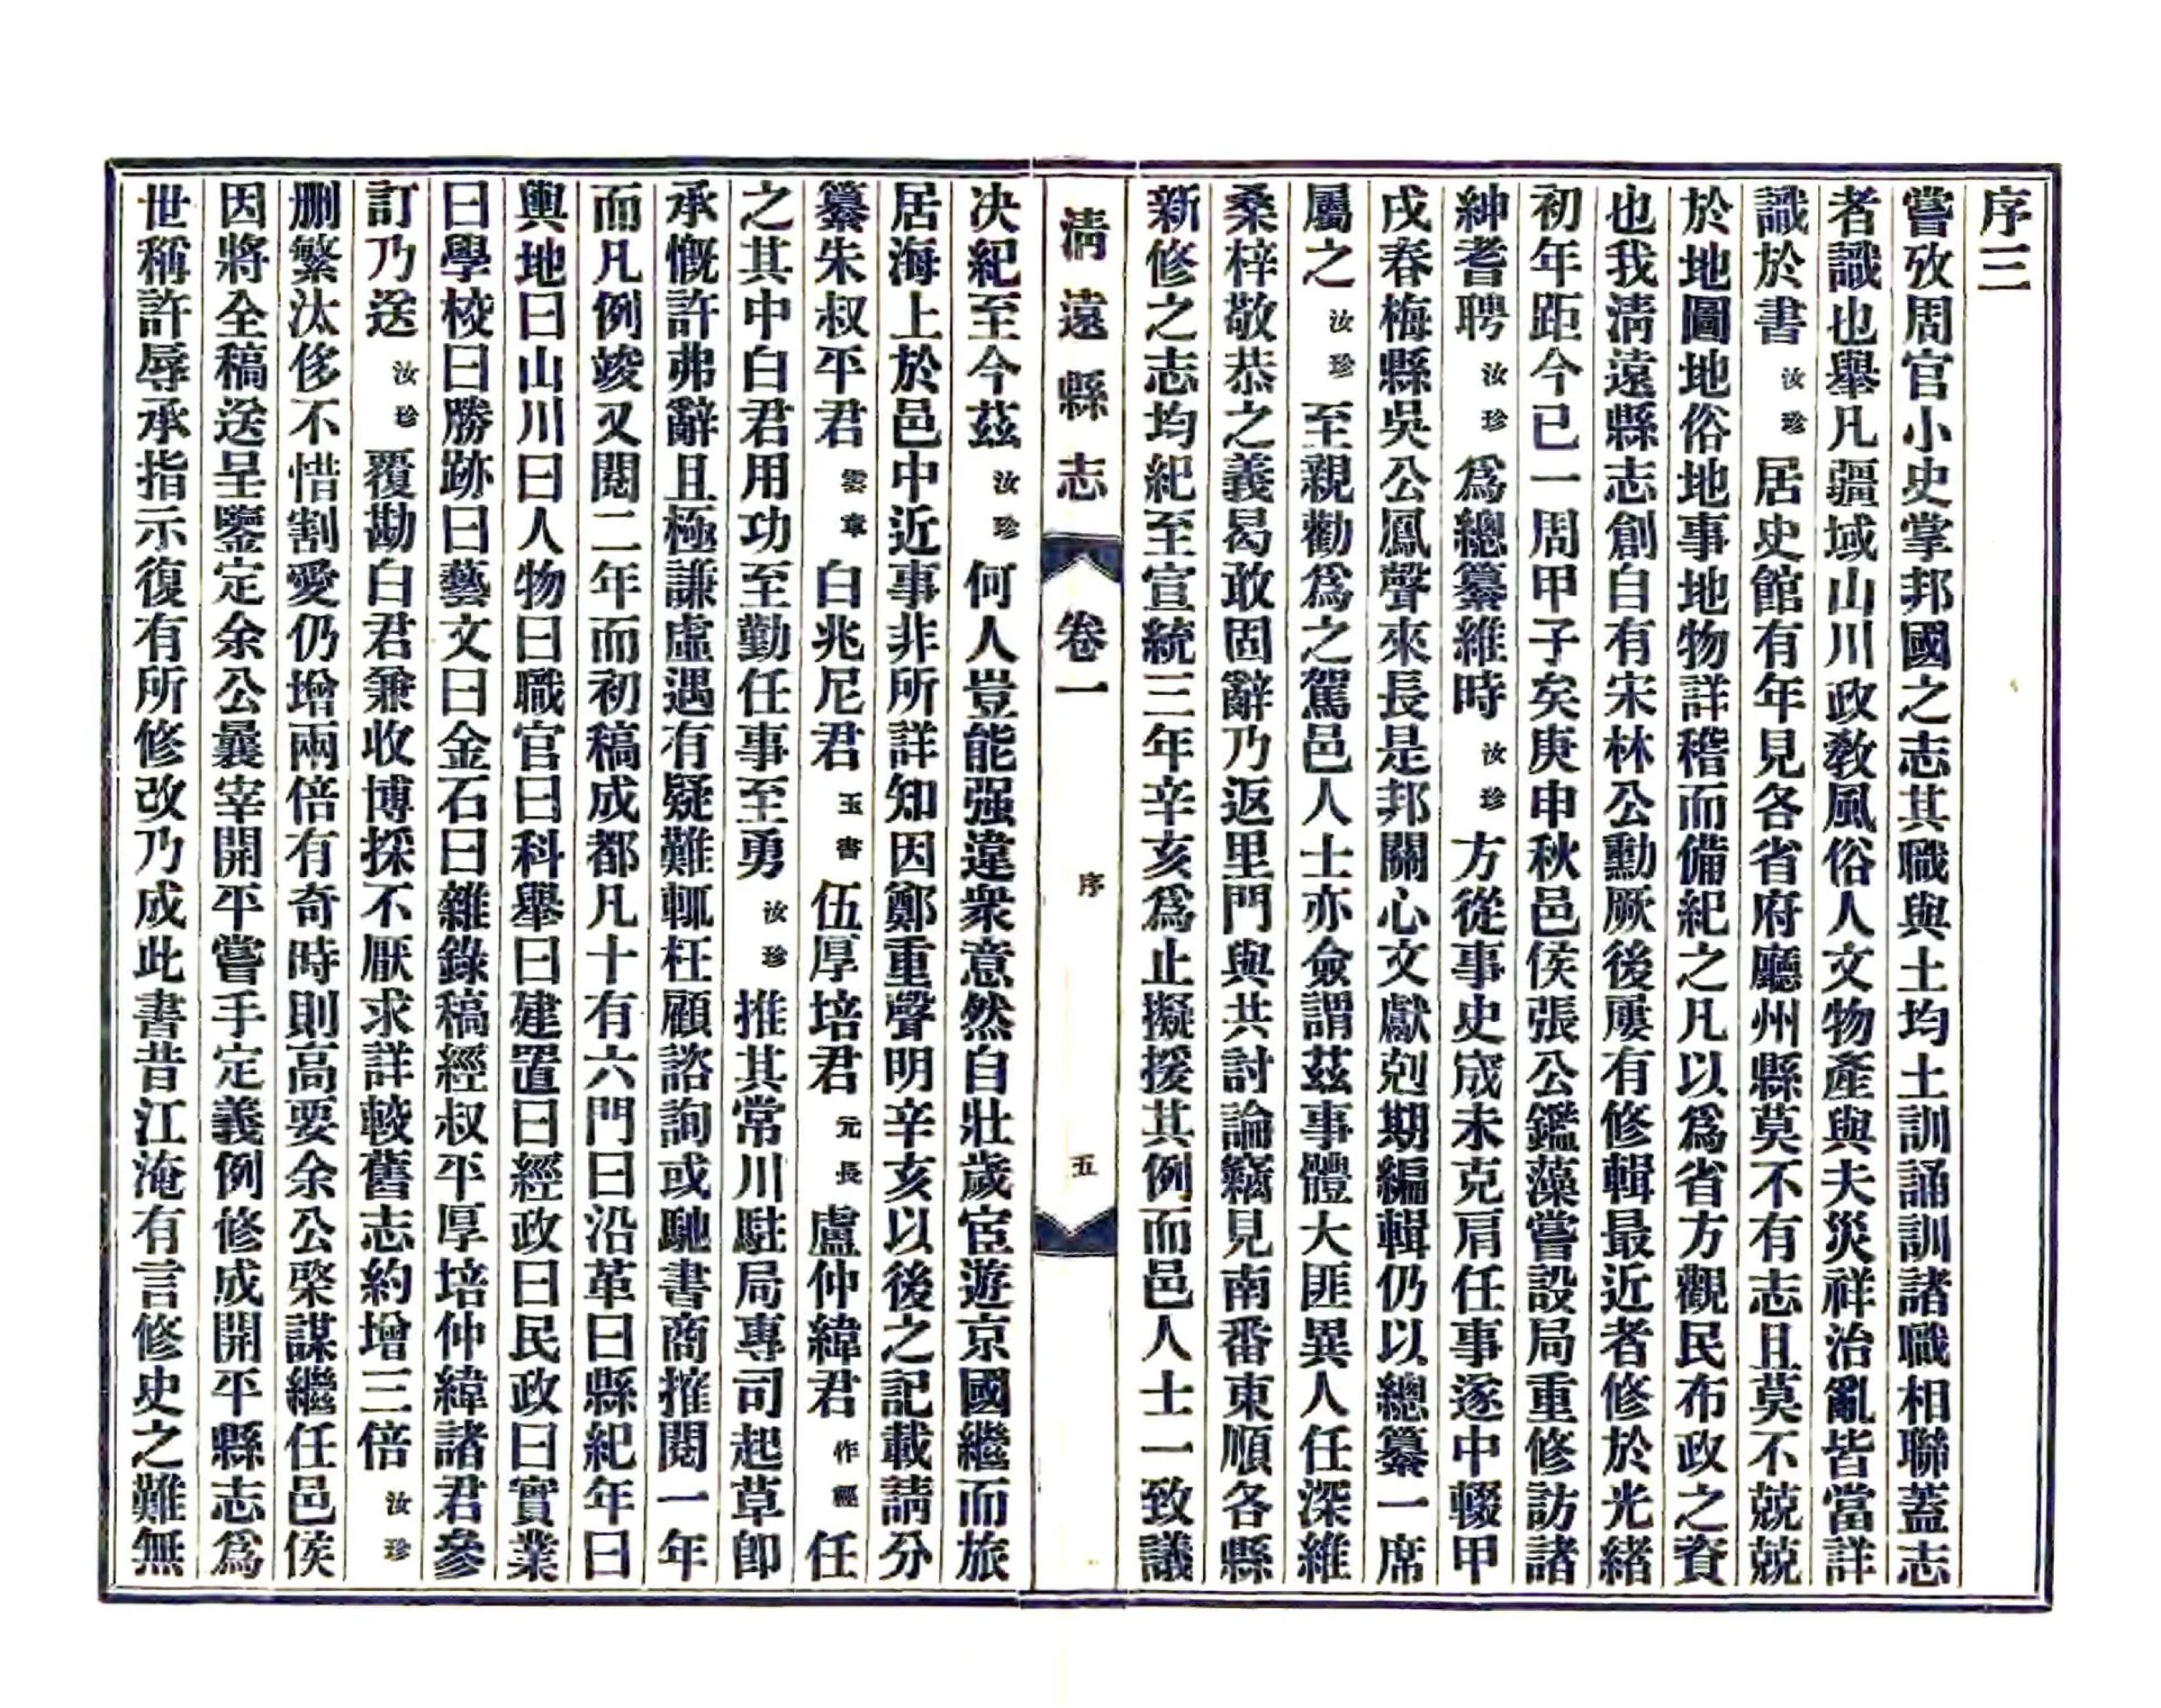 序三
嘗攷周官小史掌邦國之志其職與土均土訓誦訓諸職相聯蓋志
者識也舉凡疆域山川政教風俗人文物產與夫災祥治亂皆當詳
識於書汝珍居史館有年見各省府廳州縣莫不有志且莫不兢兢
於地圖地俗地事地物詳稽而備紀之凡以爲省方觀民布政之資
也我清遠縣志創自有宋林公勳厥後屢有修輯最近者修於光緒
初年距今已一周甲子矣庚申秋邑侯張公鑑藻嘗設局重修訪諸
紳耆聘汝珍爲總纂維時汝珍方從事史宬未克肩任事遂中輟甲
戌春梅縣吳公鳳聲來長是邦關心文獻剋期編輯仍以總纂一席
屬之汝珍至親勸爲之駕邑人士亦僉謂茲事體大匪異人任深維
桑梓敬恭之義曷敢固辭乃返里門與共討論竊見南番東順各縣
新修之志均紀至宣統三年辛亥爲止擬援其例而邑人士一致議
清遠縣志 卷一 序 五
决紀至今茲汝珍何人豈能强違衆意然自壯歲宦遊京國繼而旅
居海上於邑中近事非所詳知因鄭重聲明辛亥以後之記載請分
纂朱叔平君雲章白兆尼君玉書伍厚培君元長盧仲緯君作經任
之其中白君用功至勤任事至勇汝珍推其常川駐局專司起草卽
承慨許弗辭且極謙虛遇有疑難輒枉顧諮詢或馳書商搉閱一年
而凡例竣又閱二年而初稿成都凡十有六門曰沿革曰縣紀年曰
輿地曰山川曰人物曰職官曰科舉曰建置曰經政曰民政曰實業
曰學校曰勝跡曰藝文曰金石曰雜錄稿經叔平厚培仲緯諸君參
訂乃送汝珍覆勘白君兼收博採不厭求詳較舊志約增三倍汝珍
删繁汰侈不惜割愛仍增兩倍有奇時則高要余公棨謀繼任邑侯
因將全稿送呈鑒定余公曩宰開平嘗手定義例修成開平縣志爲
世稱許辱承指示復有所修改乃成此書昔江淹有言修史之難無